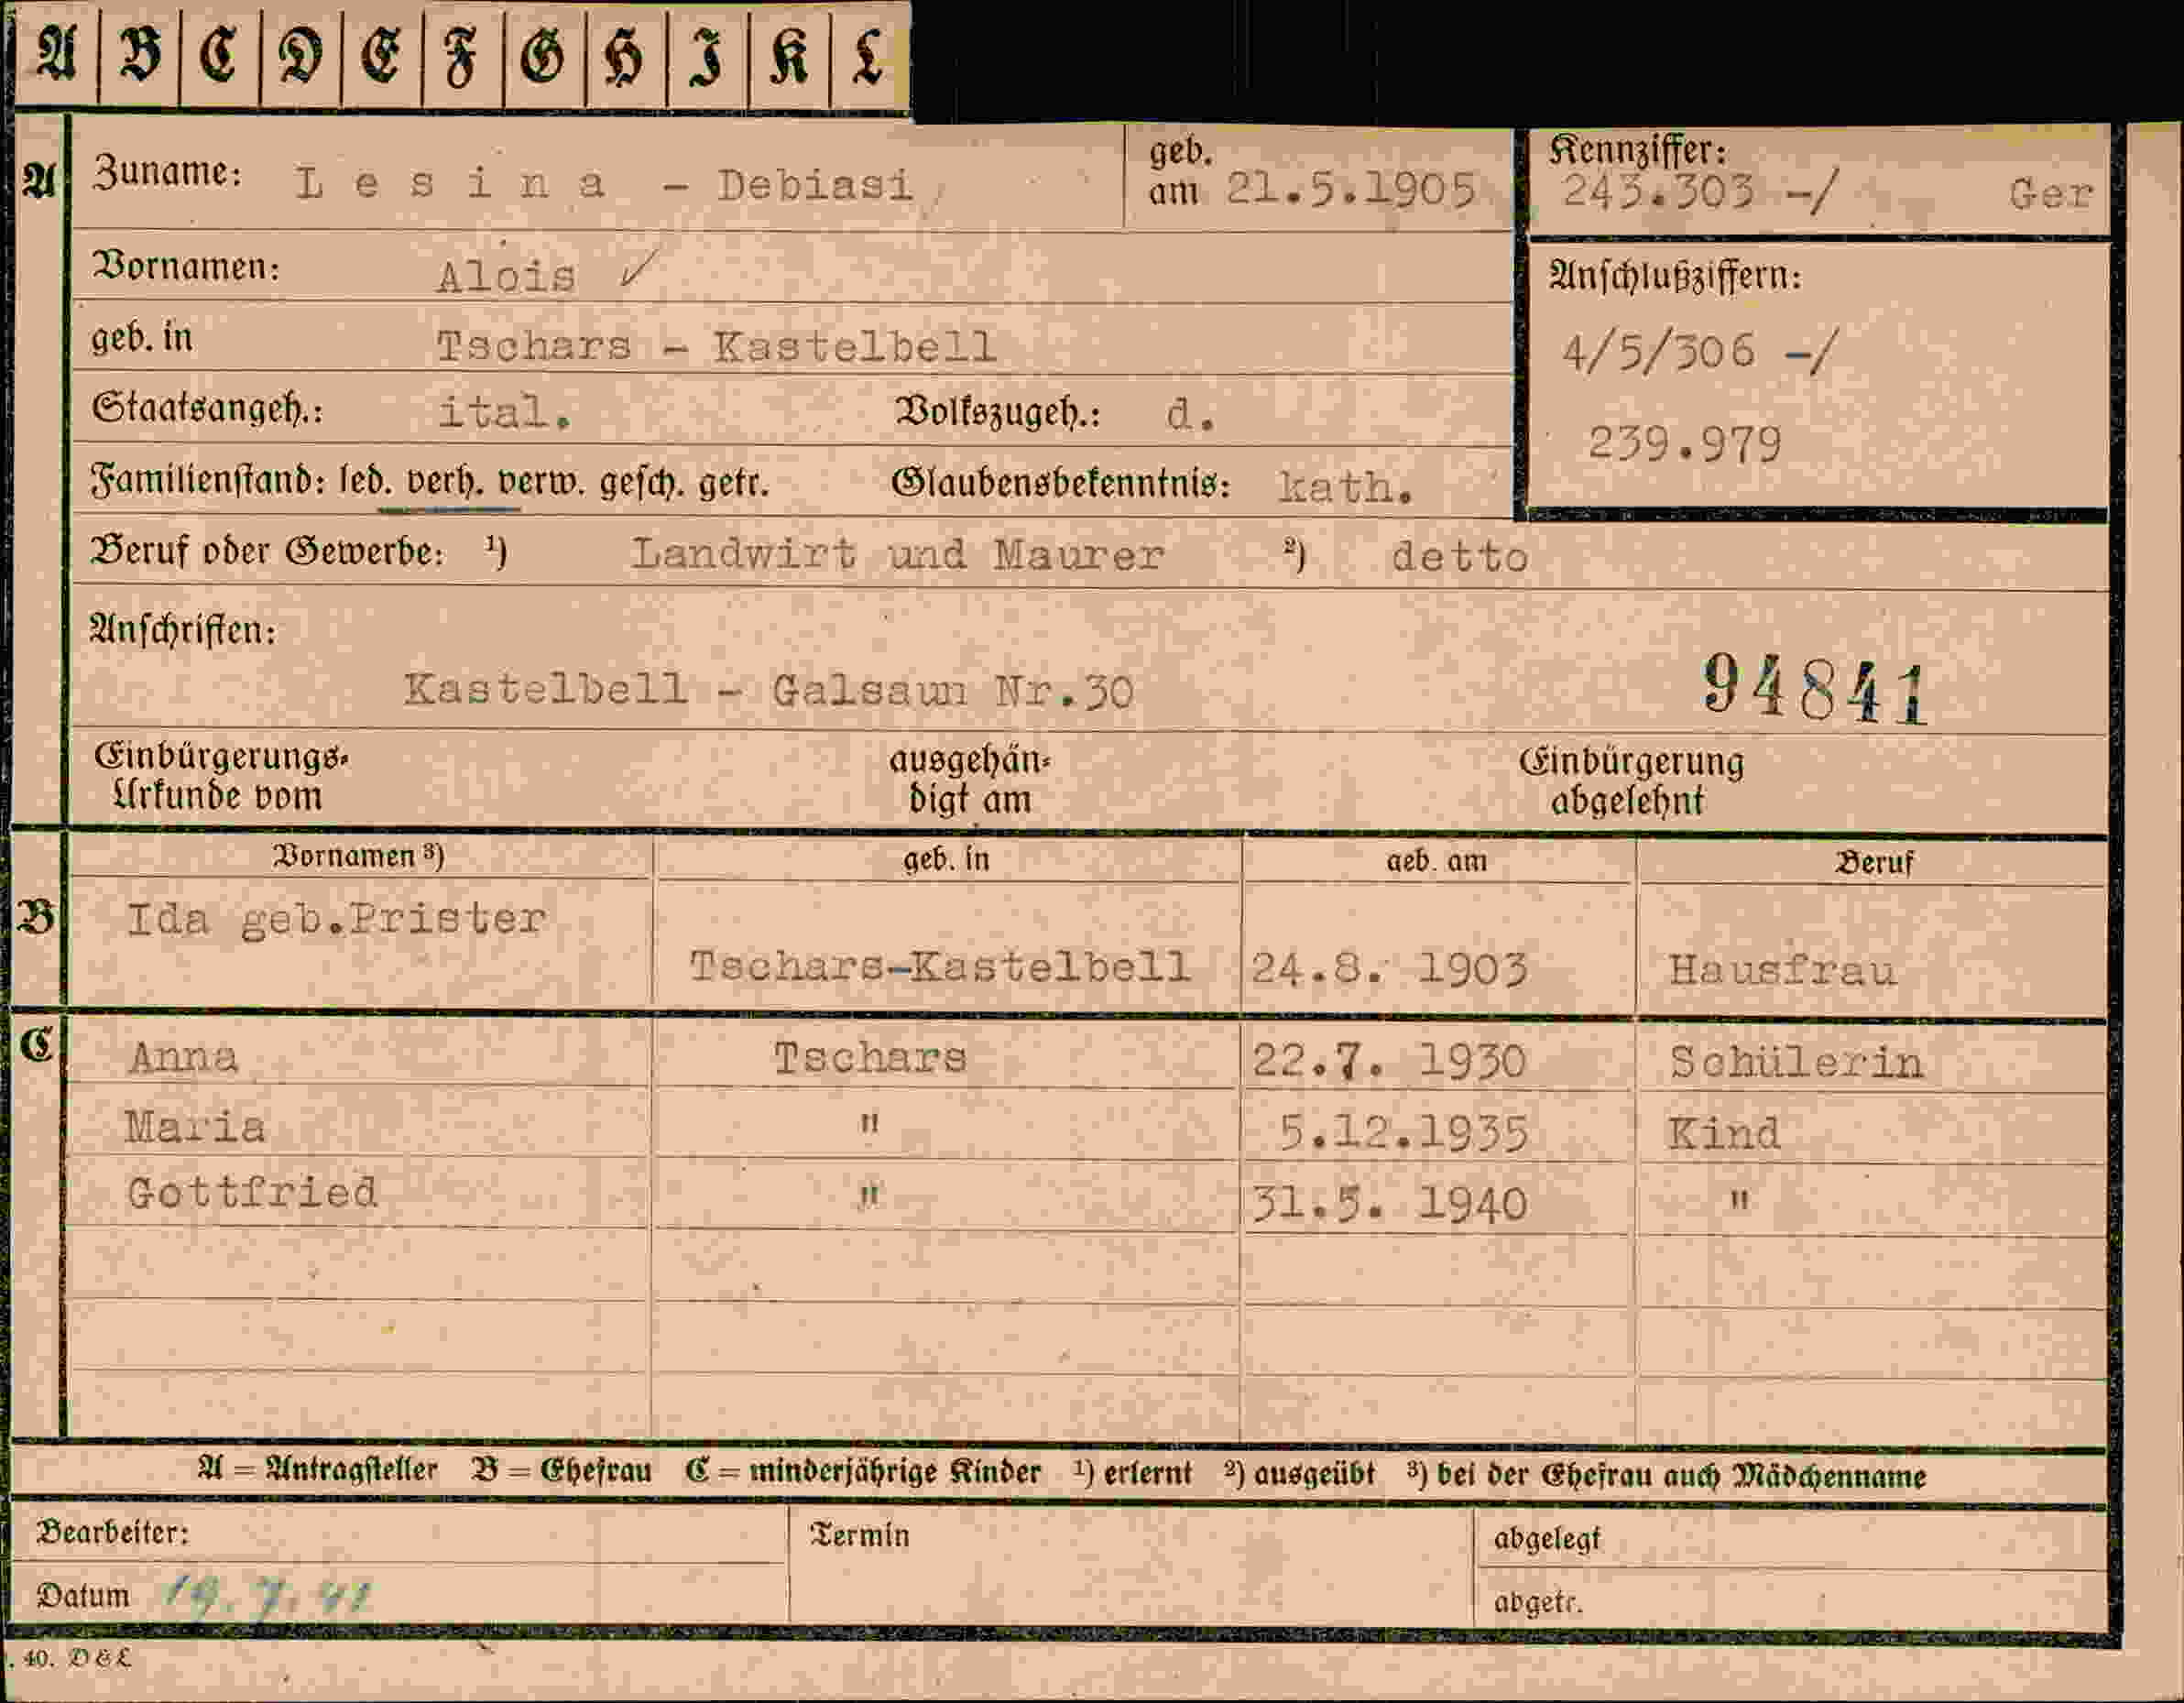 A B C D E F G H I K L
A Zuname: Lesina - Debiasi geb. am 21.5.1905 Kennziffer: 243.303 -/ Ger
Vornamen: Alois ✓
Anschlußziffern:
geb. in Tschars - Kastelbell 4/5/306 -/
Staatsangeh.: ital. Volkszugeh.: d.
239.979
Familienstand: led. verh. verw. gesch. getr. Glaubensbekenntnis: kath.
Beruf oder Gewerbe: ¹) Landwirt und Maurer ²) detto
Anschriften:
Kastelbell - Galsaun Nr.30 94841
Einbürgerungs- ausgehän- Einbürgerung
Urkunde vom digt am abgelehnt
Vornamen ³) geb. in geb. am Beruf
B Ida geb.Prister
Tschars-Kastelbell 24.8. 1903 Hausfrau
C Anna Tschars 22.7. 1930 Schülerin
Maria " 5.12.1935 Kind
Gottfried " 31.5. 1940 "
A = Antragsteller B = Ehefrau C = minderjährige Kinder ¹) erlernt ²) ausgeübt ³) bei der Ehefrau auch Mädchenname
Bearbeiter: Termin abgelegt
Datum 19.7.41 abgetr.
. 40. D & L